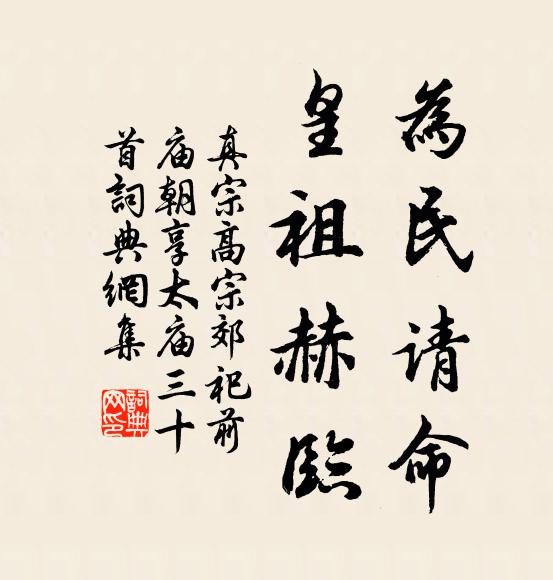 為民请命
皇祖赫臨
真宗高宗郊祀前
庙朝享太庙三十
首詞典網集
詞典
网印